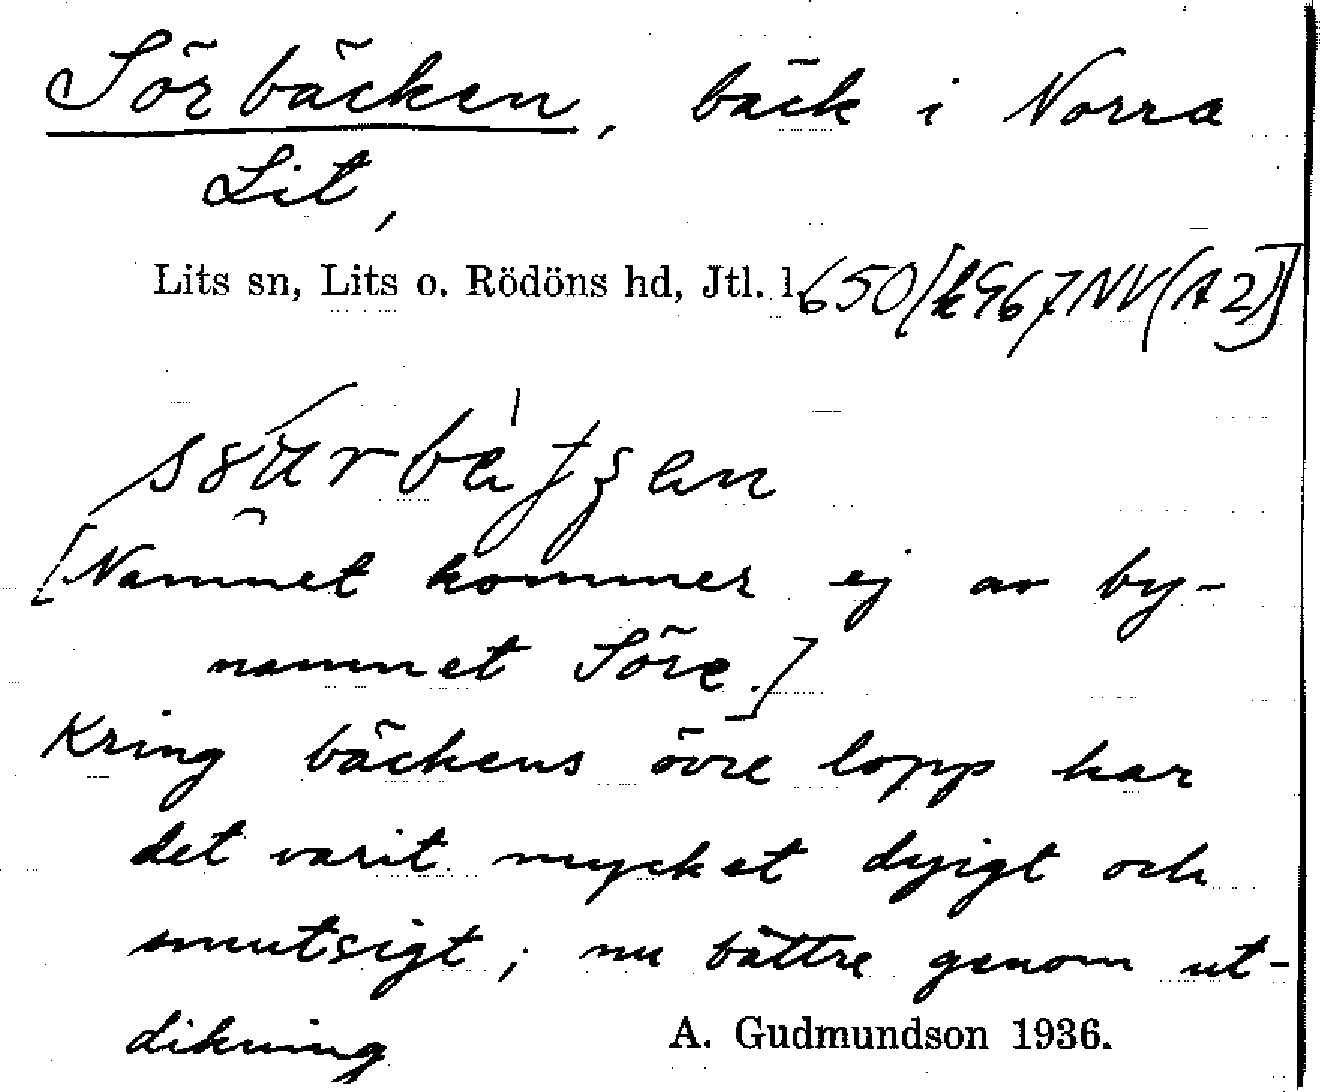 Sörbäcken, bäck i Norra
Lit,
Lits sn, Lits o. Rödöns hd, Jtl. l.
[Namnet kommer ej av by-
namnet Söre.]
Kring bäckens övre lopp har
det varit mycket dyigt och
smutsigt; nu bättre genom ut-
dikning
A. Gudmundson 1936.